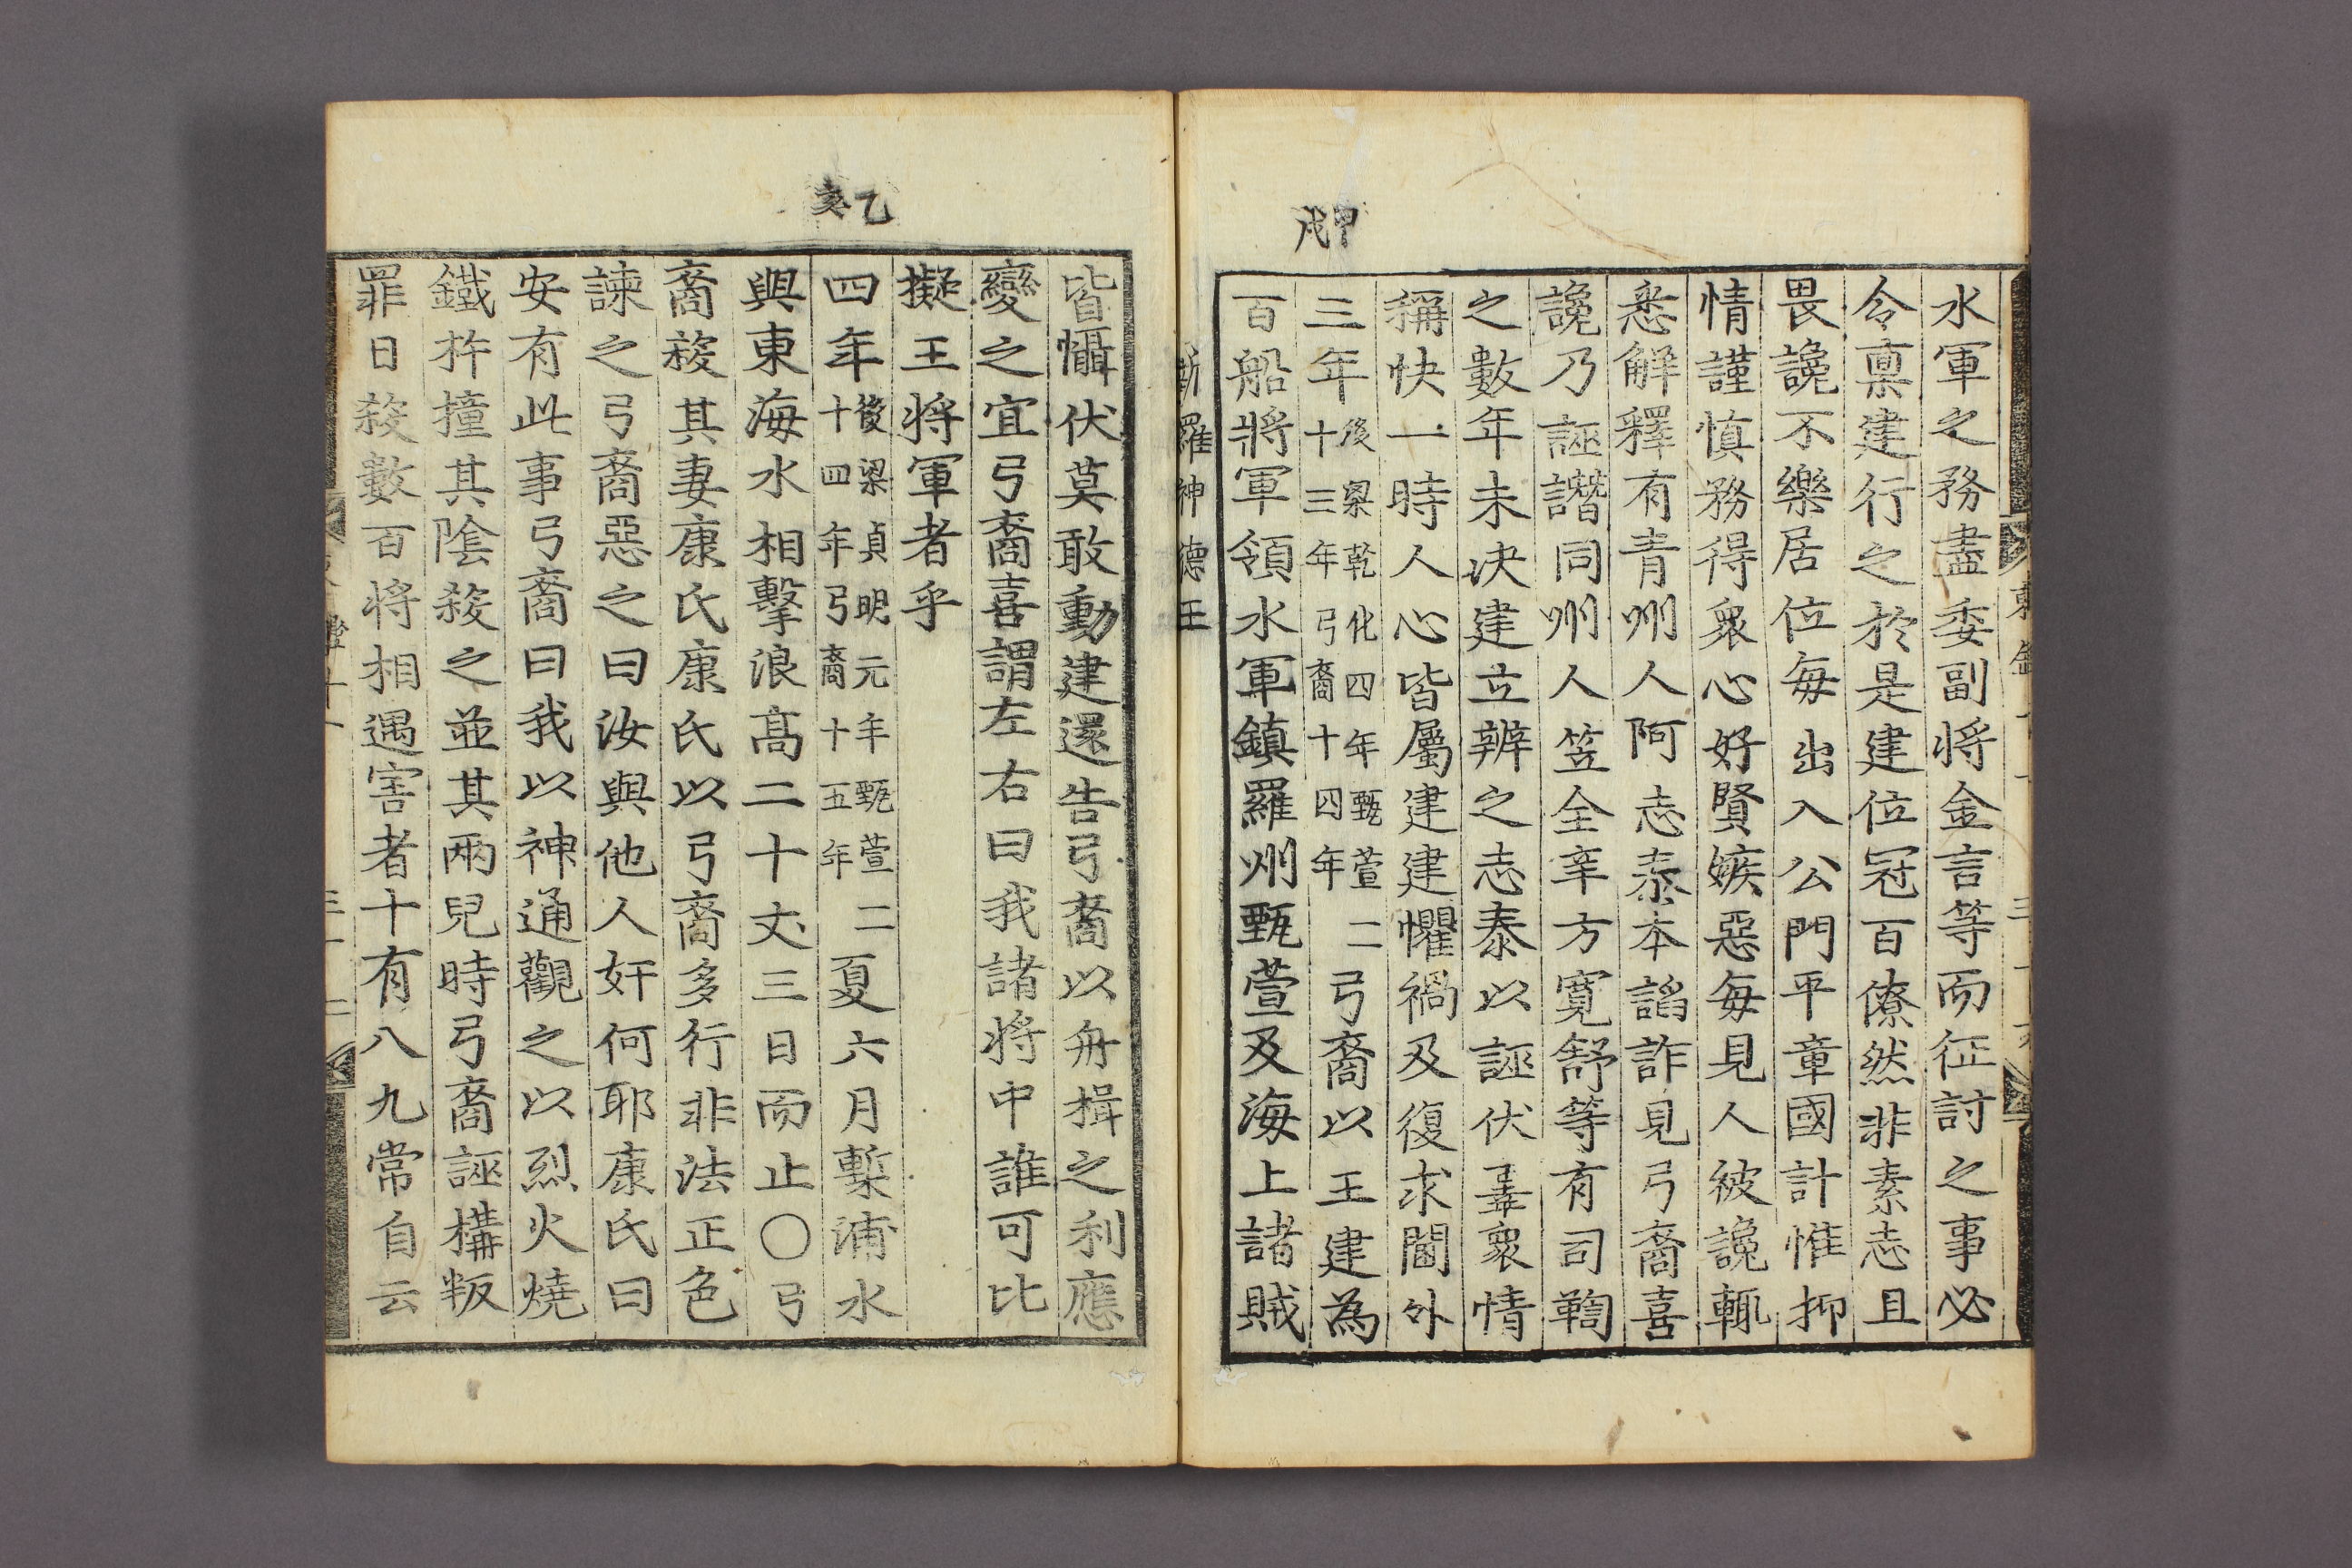 甲戌
水軍之務盡委副將金言等而征討之事必
令禀建行之於是建位冠百僚然非素志且
畏讒不樂居位每出入公門平章國計惟抑
情謹慎務得衆心好賢嫉惡每見人被讒輒
悉解釋有青州人阿志泰本諂詐見弓裔喜
讒乃誣譖同州人笠全辛方寬舒等有司鞫
之數年未决建立辨之志泰以誣伏辜衆情
稱快一時人心皆屬建建懼禍及復求閫外
三年後梁乾化四年甄萱二十三年弓裔十四年二弓裔以王建為
百船將軍領水軍鎮羅州甄萱及海上諸賊
新羅神德王
乙亥
皆懾伏莫敢動建還告弓裔以舟楫之利應
變之宜弓裔喜謂左右曰我諸將中誰可比
擬王將軍者乎
四年後梁貞明元年甄萱二十四年弓裔十五年夏六月槧浦水
與東海水相擊浪高二十丈三日而止〇弓
裔殺其妻康氏康氏以弓裔多行非法正色
諫之弓裔惡之曰汝與他人奸何耶康氏曰
安有此事弓裔曰我以神通觀之以烈火燒
鐵杵撞其陰殺之並其兩兒時弓裔誣構叛
罪日殺數百將相遇害者十有八九常自云